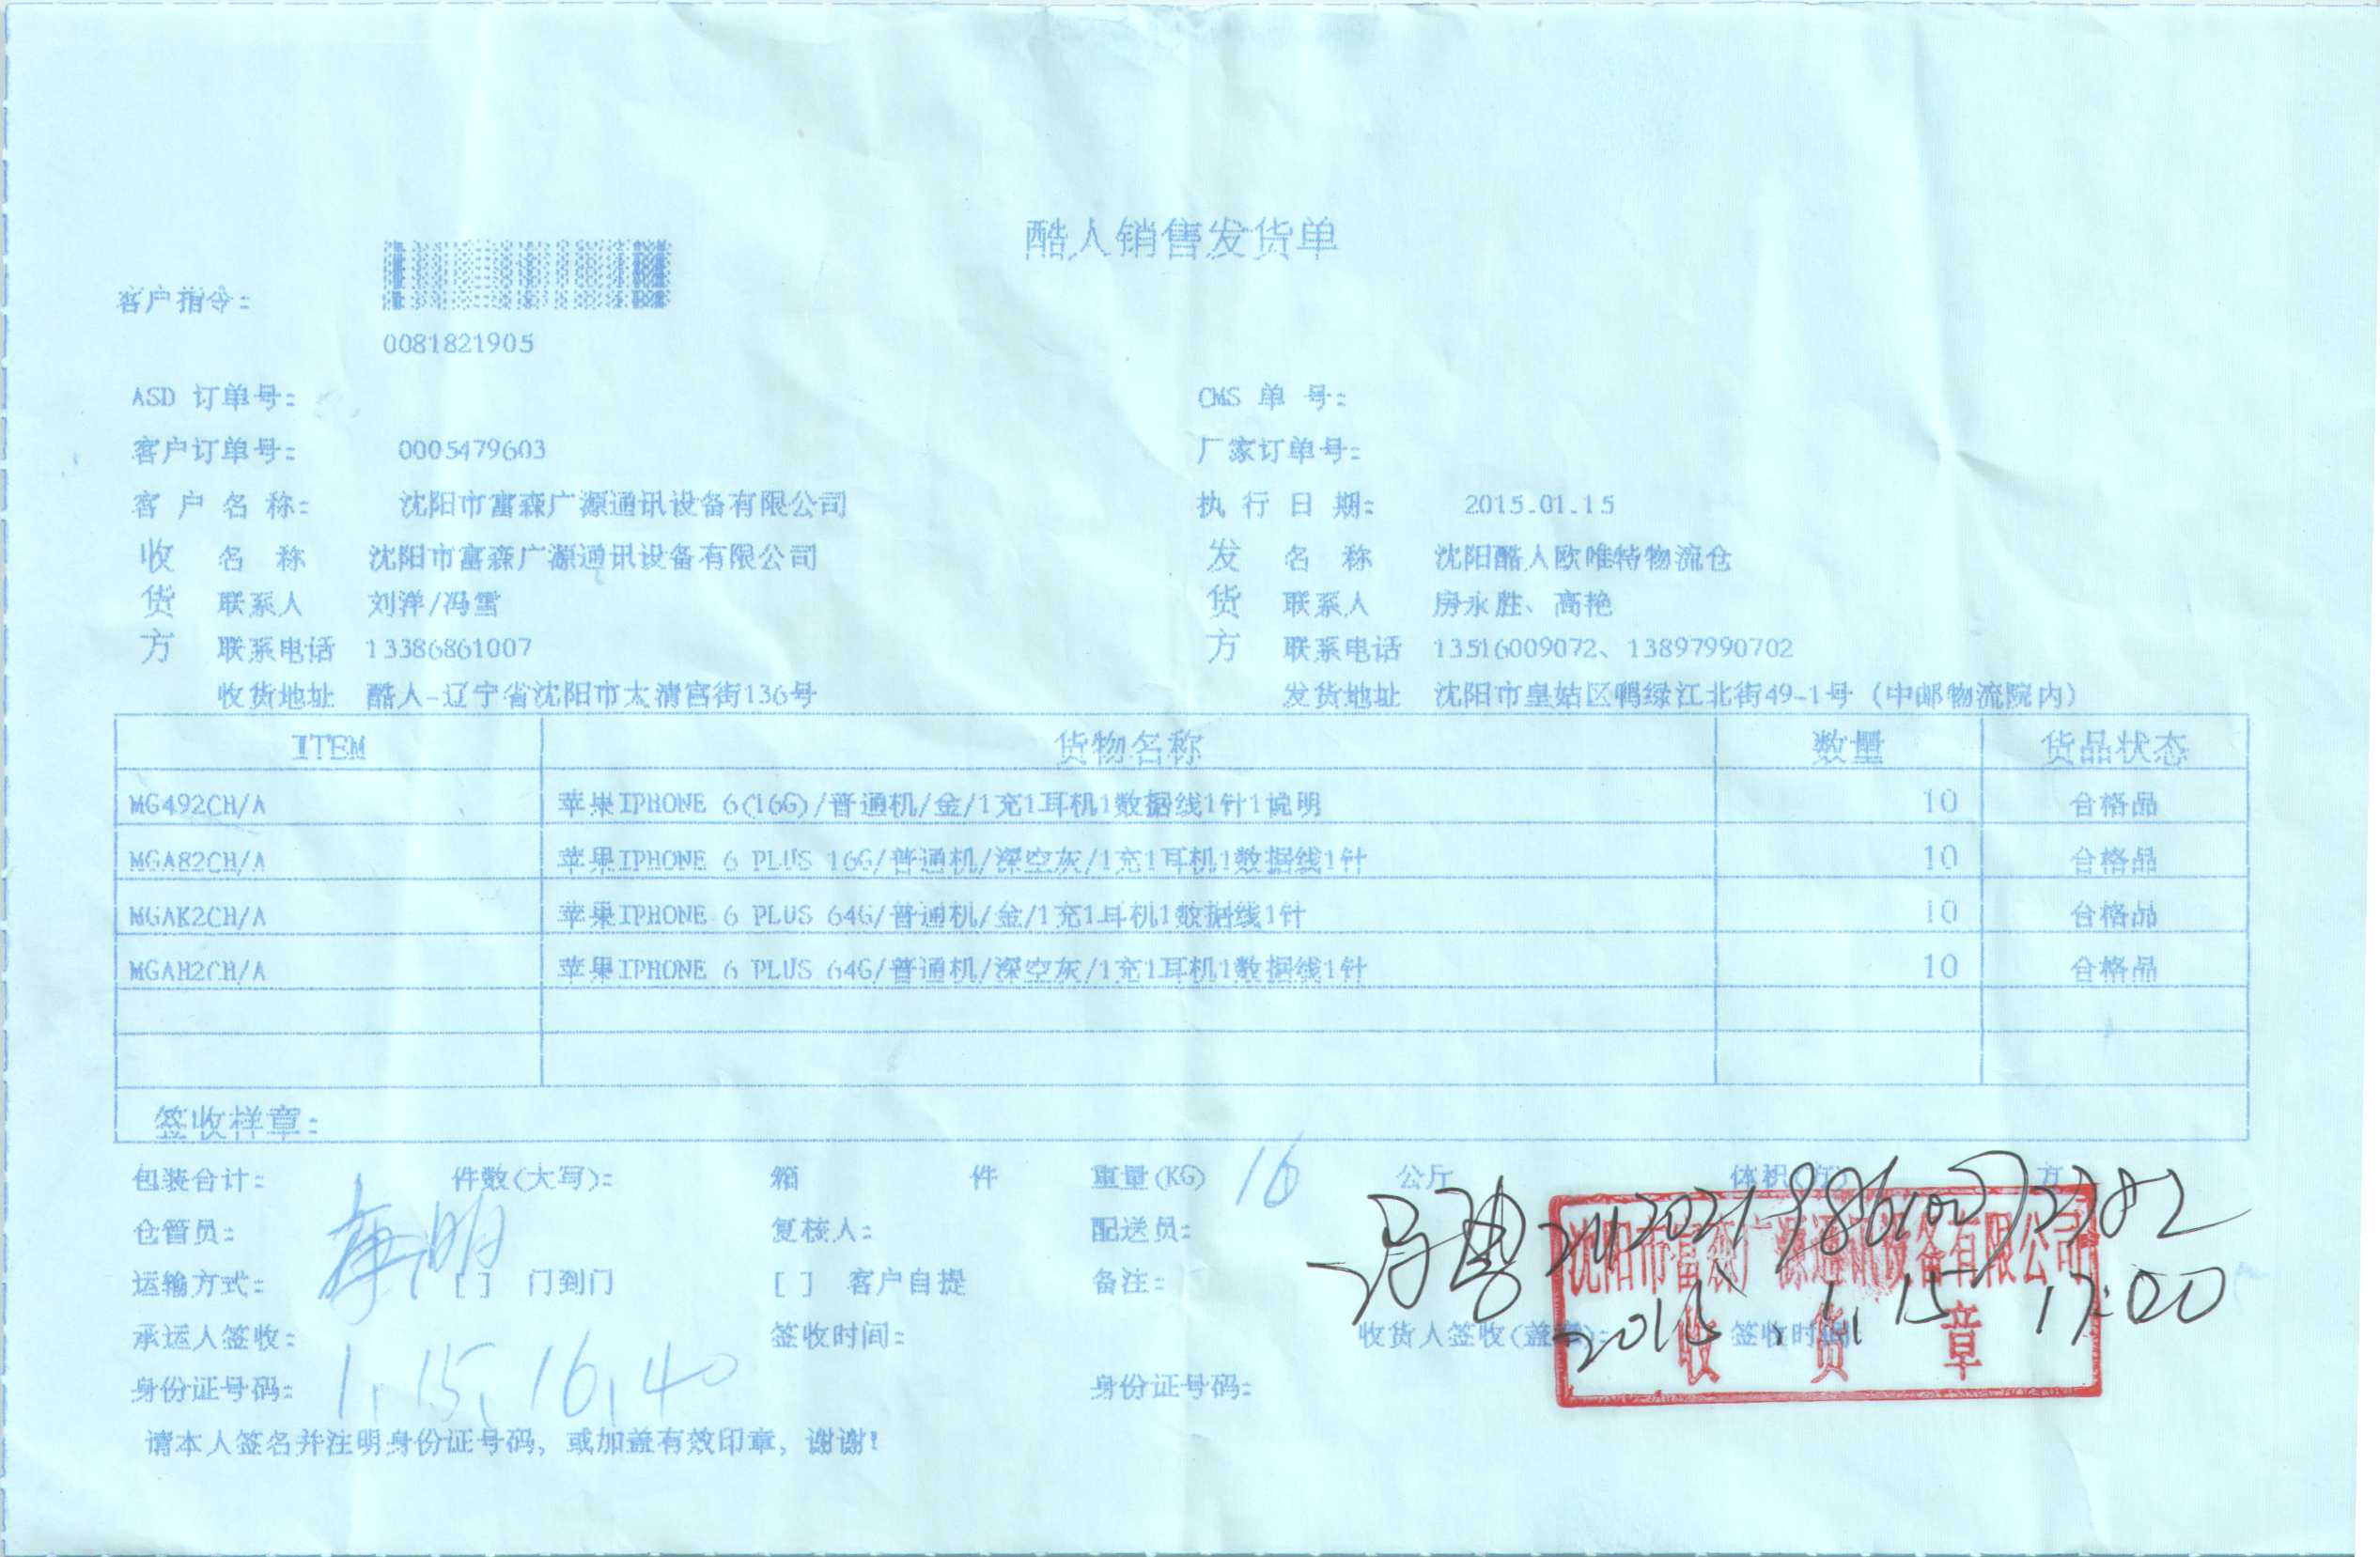 酷人销售发货单
客户指令:
0081821905
ASD 订单号: CMS 单 号:
客户订单号: 0005479603 厂家订单号:
客 户 名 称: 沈阳市富森广源通讯设备有限公司 执 行 日 期: 2015.01.15
收 名 称 沈阳市富森广源通讯设备有限公司 发 名 称 沈阳酷人欧唯特物流仓
货 联系人 刘洋/冯雪 货 联系人 房永胜、高艳
方 联系电话 13386861007 方 联系电话 13516009072、13897990702
收货地址 酷人-辽宁省沈阳市太清宫街136号 发货地址 沈阳市皇姑区鸭绿江北街49-1号 (中邮物流院内)
ITEM 货物名称 数量 货品状态
MG492CH/A 苹果IPHONE 6(16G)/普通机/金/1充1耳机1数据线1针1说明 10 合格品
MGA82CH/A 苹果IPHONE 6 PLUS 16G/普通机/深空灰/1充1耳机1数据线1针 10 合格品
MGAK2CH/A 苹果IPHONE 6 PLUS 64G/普通机/金/1充1耳机1数据线1针 10 合格品
MGAH2CH/A 苹果IPHONE 6 PLUS 64G/普通机/深空灰/1充1耳机1数据线1针 10 合格品
签收样章:
包装合计: 件数(大写): 箱 件 重量(KG) 16 公斤 体积(方) 方
仓管员: 复核人: 配送员: 冯雪
沈阳市富森广源通讯设备有限公司
运输方式: [ ] 门到门 [ ] 客户自提 备注:
承运人签收: 签收时间: 收货人签收(盖章): 签收时间: 2015.1.15 17:00
收货章
身份证号码: 1.15,16,40 身份证号码:
请本人签名并注明身份证号码, 或加盖有效印章, 谢谢!